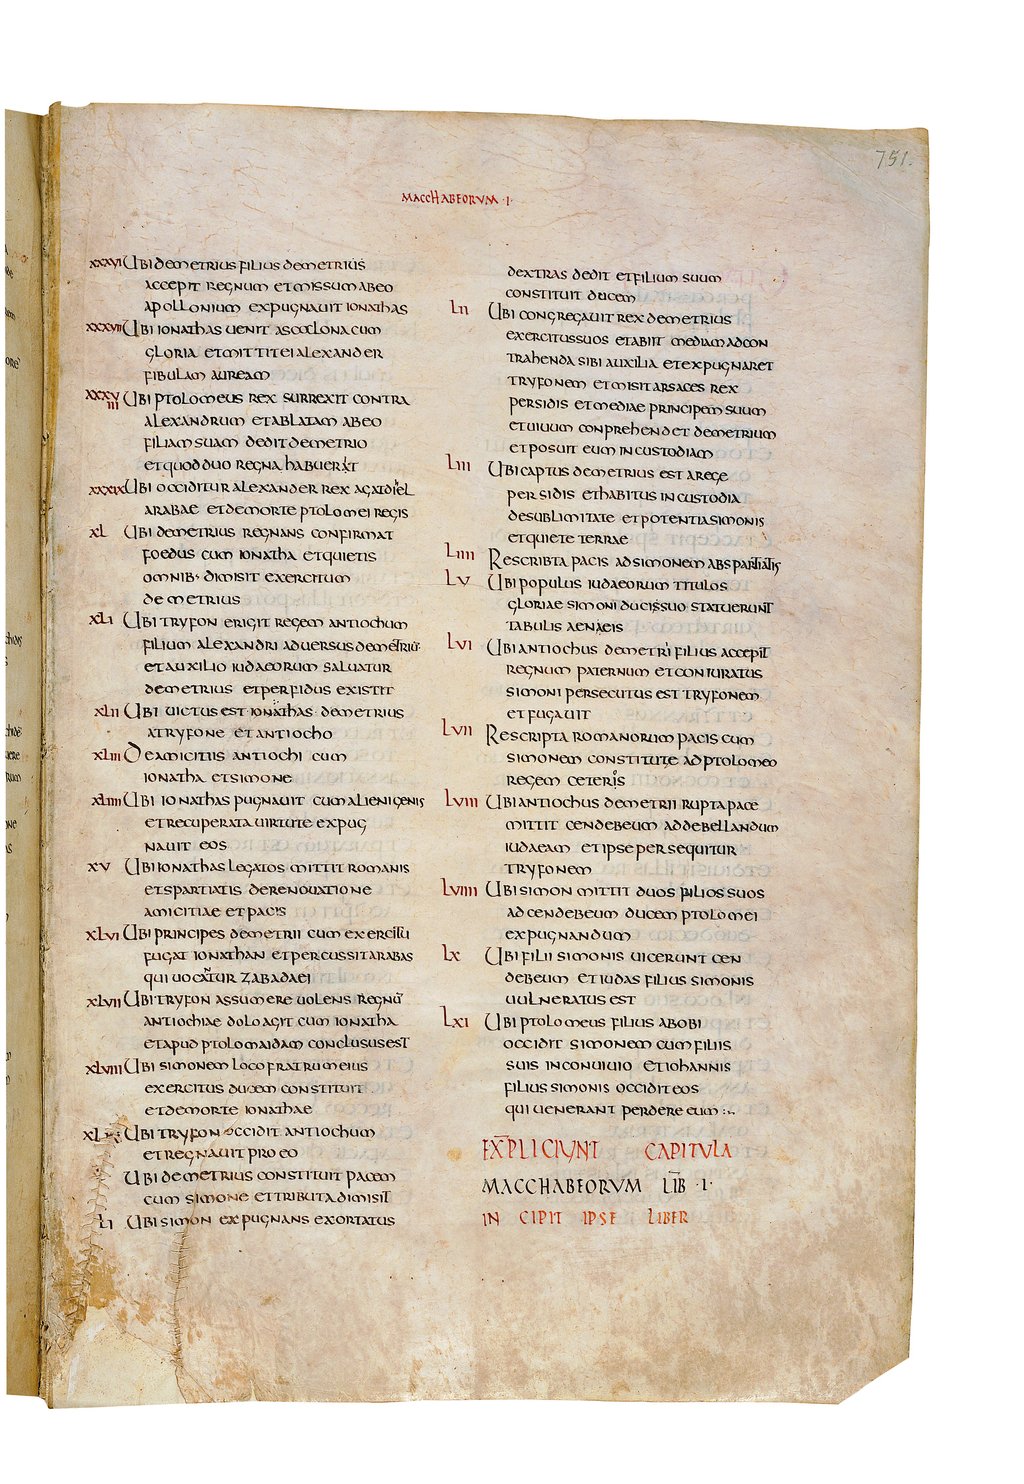 751.
MACCHABEORUM · I ·
XXXVI UBI DEMETRIUS FILIUS DEMETRIUS
ACCEPIT REGNUM ET MISSUM AB EO
APOLLONIUM EXPUGNAUIT IONATHAS
XXXVII UBI IONATHAS UENIT ASCOLONA CUM
GLORIA ET MITTIT EI ALEXANDER
FIBULAM AUREAM
XXXVIII UBI PTOLOMEUS REX SURREXIT CONTRA
ALEXANDRUM ET ABLATAM AB EO
FILIAM SUAM DEDIT DEMETRIO
ET QUOD DUO REGNA HABUERIT
XXXIX UBI OCCIDITUR ALEXANDER REX AGATDIEL
ARABAE ET DE MORTE PTOLOMEI REGIS
XL UBI DEMETRIUS REGNANS CONFIRMAT
FOEDUS CUM IONATHA ET QUIETIS
OMNIB· DIMISIT EXERCITUM
DEMETRIUS
XLI UBI TRYFON ERIGIT REGEM ANTIOCHUM
FILIUM ALEXANDRI ADUERSUS DEMETRIU·
ET AUXILIO IUDAEORUM SALUATUR
DEMETRIUS ET PERFIDUS EXISTIT
XLII UBI UICTUS EST IONATHAS· DEMETRIUS
A TRYFONE ET ANTIOCHO
XLIII DE AMICITIIS ANTIOCHI CUM
IONATHA ET SIMONE
XLIIII UBI IONATHAS PUGNAUIT CUM ALIENIGENIS
ET RECUPERATA UIRTUTE EXPUG
NAUIT EOS
XV UBI IONATHAS LEGATOS MITTIT ROMANIS
ET SPARTIATIS DE RENOUATIONE
AMICITIAE ET PACIS
XLVI UBI PRINCIPES DEMETRII CUM EXERCITU
FUGAT IONATHAN ET PERCUSSIT ARABAS
QUI UOCANTUR ZABADAEI
XLVII UBI TRYFON ASSUMERE UOLENS REGNŪ
ANTIOCHIAE DOLO AGIT CUM IONATHA
ET APUD PTOLOMAIDAM CONCLUSUS EST
XLVIII UBI SIMONEM LOCO FRATRUM EIUS
EXERCITUS DUCEM CONSTITUIT
ET DE MORTE IONATHAE
UBI TRYFON OCCIDIT ANTIOCHUM
ET REGNAUIT PRO EO
UBI DEMETRIUS CONSTITUIT PACEM
CUM SIMONE ET TRIBUTA DIMISIT
LI UBI SIMON EXPUGNANS EXORTATUS
DEXTRAS DEDIT ET FILIUM SUUM
CONSTITUIT DUCEM
LII UBI CONGREGAUIT REX DEMETRIUS
EXERCITUS SUOS ET ABIIT MEDIAM AD CON
TRAHENDA SIBI AUXILIA ET EXPUGNARET
TRYFONEM ET MISIT ARSACES REX
PERSIDIS ET MEDIAE PRINCIPEM SUUM
ET UIUUM CONPREHENDET DEMETRIUM
ET POSUIT EUM IN CUSTODIAM
LIII UBI CAPTUS DEMETRIUS EST A REGE
PERSIDIS ET HABITUS IN CUSTODIA
DE SUBLIMITATE ET POTENTIA SIMONIS
ET QUIETE TERRAE
LIIII RESCRIBTA PACIS AD SIMONEM AB SPARTIATIS
LV UBI POPULUS IUDAEORUM TITULOS
GLORIAE SIMONI DUCI SSUO STATUERUNT
TABULIS AENAEIS
LVI UBI ANTIOCHUS DEMETRI FILIUS ACCEPIT
REGNUM PATERNUM ET CONIURATUS
SIMONI PERSECUTUS EST TRYFONEM
ET FUGAUIT
LVII RESCRIPTA ROMANORUM PACIS CUM
SIMONEM CONSTITUTE AD PTOLOMEO
REGEM CETERIS
LVIII UBI ANTIOCHUS DEMETRII RUPTA PACE
MITTIT CENDEBEUM AD DEBELLANDUM
IUDAEAM ET IPSE PERSEQUITUR
TRYFONEM
LVIIII UBI SIMON MITTIT DUOS FILIOS SUOS
AD CENDEBEUM DUCEM PTOLOMEI
EXPUGNANDUM
LX UBI FILII SIMONIS UICERUNT CEN
DEBEUM ET IUDAS FILIUS SIMONIS
UULNERATUS EST
LXI UBI PTOLOMEUS FILIUS ABOBI
OCCIDIT SIMONEM CUM FILIIS
SUIS IN CONUIUIO ET IOHANNIS
FILIUS SIMONIS OCCIDIT EOS
QUI UENERANT PERDERE EUM :·
EXPLICIUNT CAPITVLA
MACCHABEORVM LIB · I ·
IN CIPIT IPSE LIBER